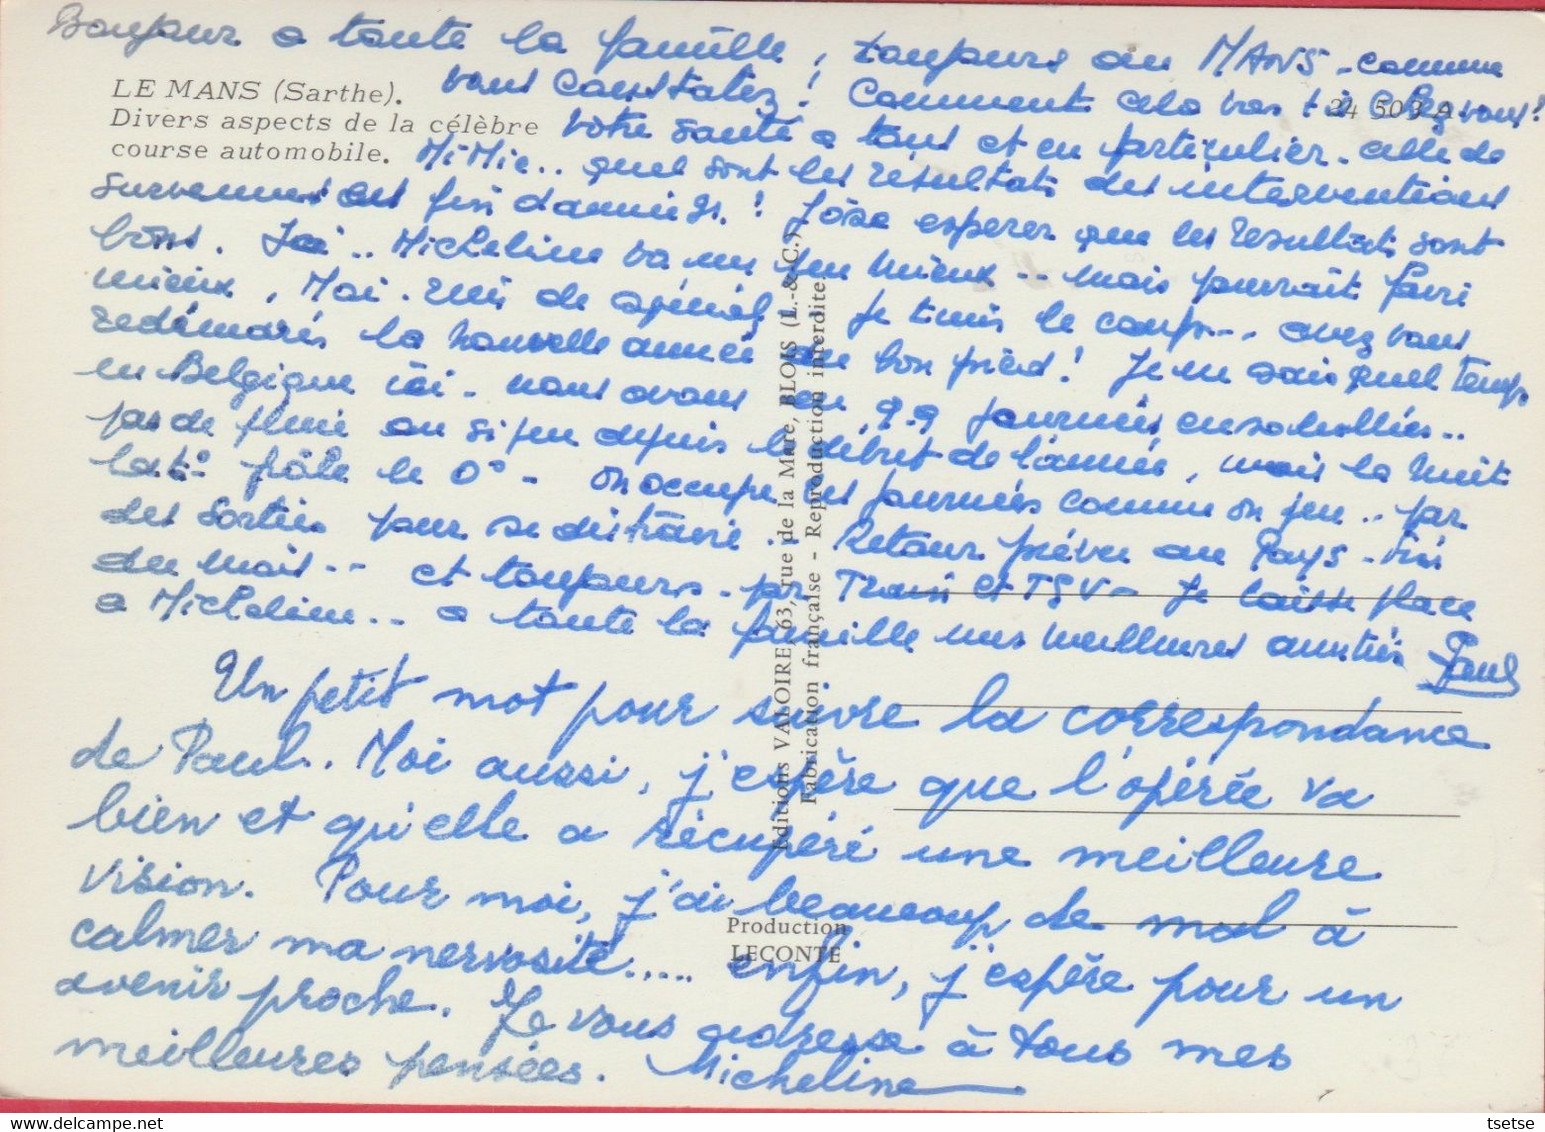 Bonjour a toute la famille, toujours au MANS - comme
LE MANS (Sarthe).
vous constatez! Comment cela vas t-il chez vous!
24 503 A
Divers aspects de la célèbre
votre santé a tous et en particulier - celle de
course automobile.
Mi Mie.. quel sont les résultats des interventions
survenues en fin d'années.! J'ose esperer que les resultats sont
bons. Ici.. Micheline va un peu mieux - mais pourrait faire
mieux, Moi - rien de spécial je tiens le coup... avez vous
redémarés la nouvelle année du bon pied! Je ne sais quel temps
en Belgique ici - nous avons eu 9.9 journées ensoleillées..
pas de pluie ou si peu depuis le début de l'année, mais la nuit
la t° frôle le 0° - on occupe les journées comme on peu.. par
des sorties pour se distraire. Retour prévu au Pays - fin
du mois.. et toujours - par Train et TGV - Je laisse place
a Micheline.. a toute la famille mes meilleures amitiés Paul
Un petit mot pour suivre la correspondance
de Paul. Moi aussi, j'espère que l'opérée va
bien et qu'elle a récupéré une meilleure
vision. Pour moi, j'ai beaucoup de mal à
calmer ma nervosité..... enfin, j'espère pour un
avenir proche. Je vous adresse à tous mes
meilleures pensées. Micheline
Editions VALOIRE, 63, rue de la Mare, BLOIS (L.-&-C.)
Fabrication française - Reproduction interdite.
Production
LECONTE
tsetse